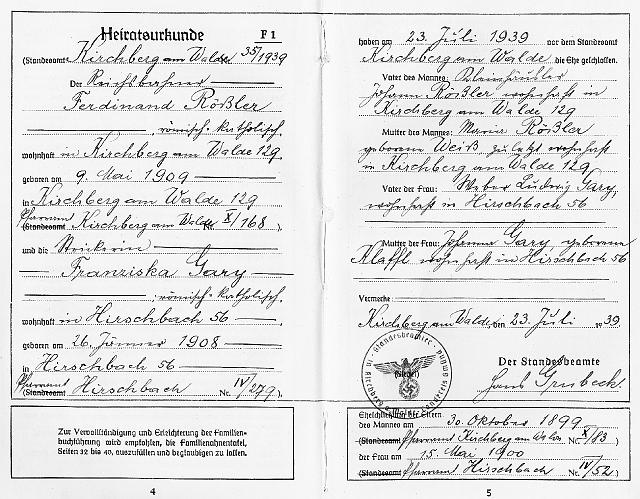 Heiratsurkunde F 1
(Standesamt Kirchberg am Walde 35/1939
Der Reichsbahner
Ferdinand Rößler
, römisch-katholisch,
wohnhaft in Kirchberg am Walde 129
geboren am 9. Mai 1909
in Kirchberg am Walde 129
Pfarramt
(Standesamt Kirchberg am Walde Nr. X/168),
und die Strickerin
Franziska Gary
, römisch-katholisch,
wohnhaft in Hirschbach 56
geboren am 26. Jänner 1908
in Hirschbach 56
Pfarramt
(Standesamt Hirschbach Nr. IV/279),
Zur Vervollständigung und Erleichterung der Familien-
buchführung wird empfohlen, die Familienahnentafel,
Seiten 32 bis 40, auszufüllen und beglaubigen zu lassen.
4
haben am 23. Juli 1939 vor dem Standesamt
Kirchberg am Walde die Ehe geschlossen.
Vater des Mannes: Kleinhäusler
Johann Rößler wohnhaft in
Kirchberg am Walde 129
Mutter des Mannes: Maria Rößler
geborene Weiß zuletzt wohnhaft
in Kirchberg am Walde 129
Vater der Frau: Weber Ludwig Gary,
wohnhaft in Hirschbach 56
Mutter der Frau: Johanna Gary geborene
Klaffl wohnhaft in Hirschbach 56
Vermerke:
Kirchberg am Walde, den 23. Juli 1939
(Siegel)
Der Standesbeamte
Hans Grubeck
Eheschließung der Eltern
des Mannes am 30. Oktober 1899
(Standesamt Pfarramt Kirchberg am Walde Nr. X/83)
der Frau am 15. Mai 1900
(Standesamt Pfarramt Hirschbach Nr. IV/52)
5